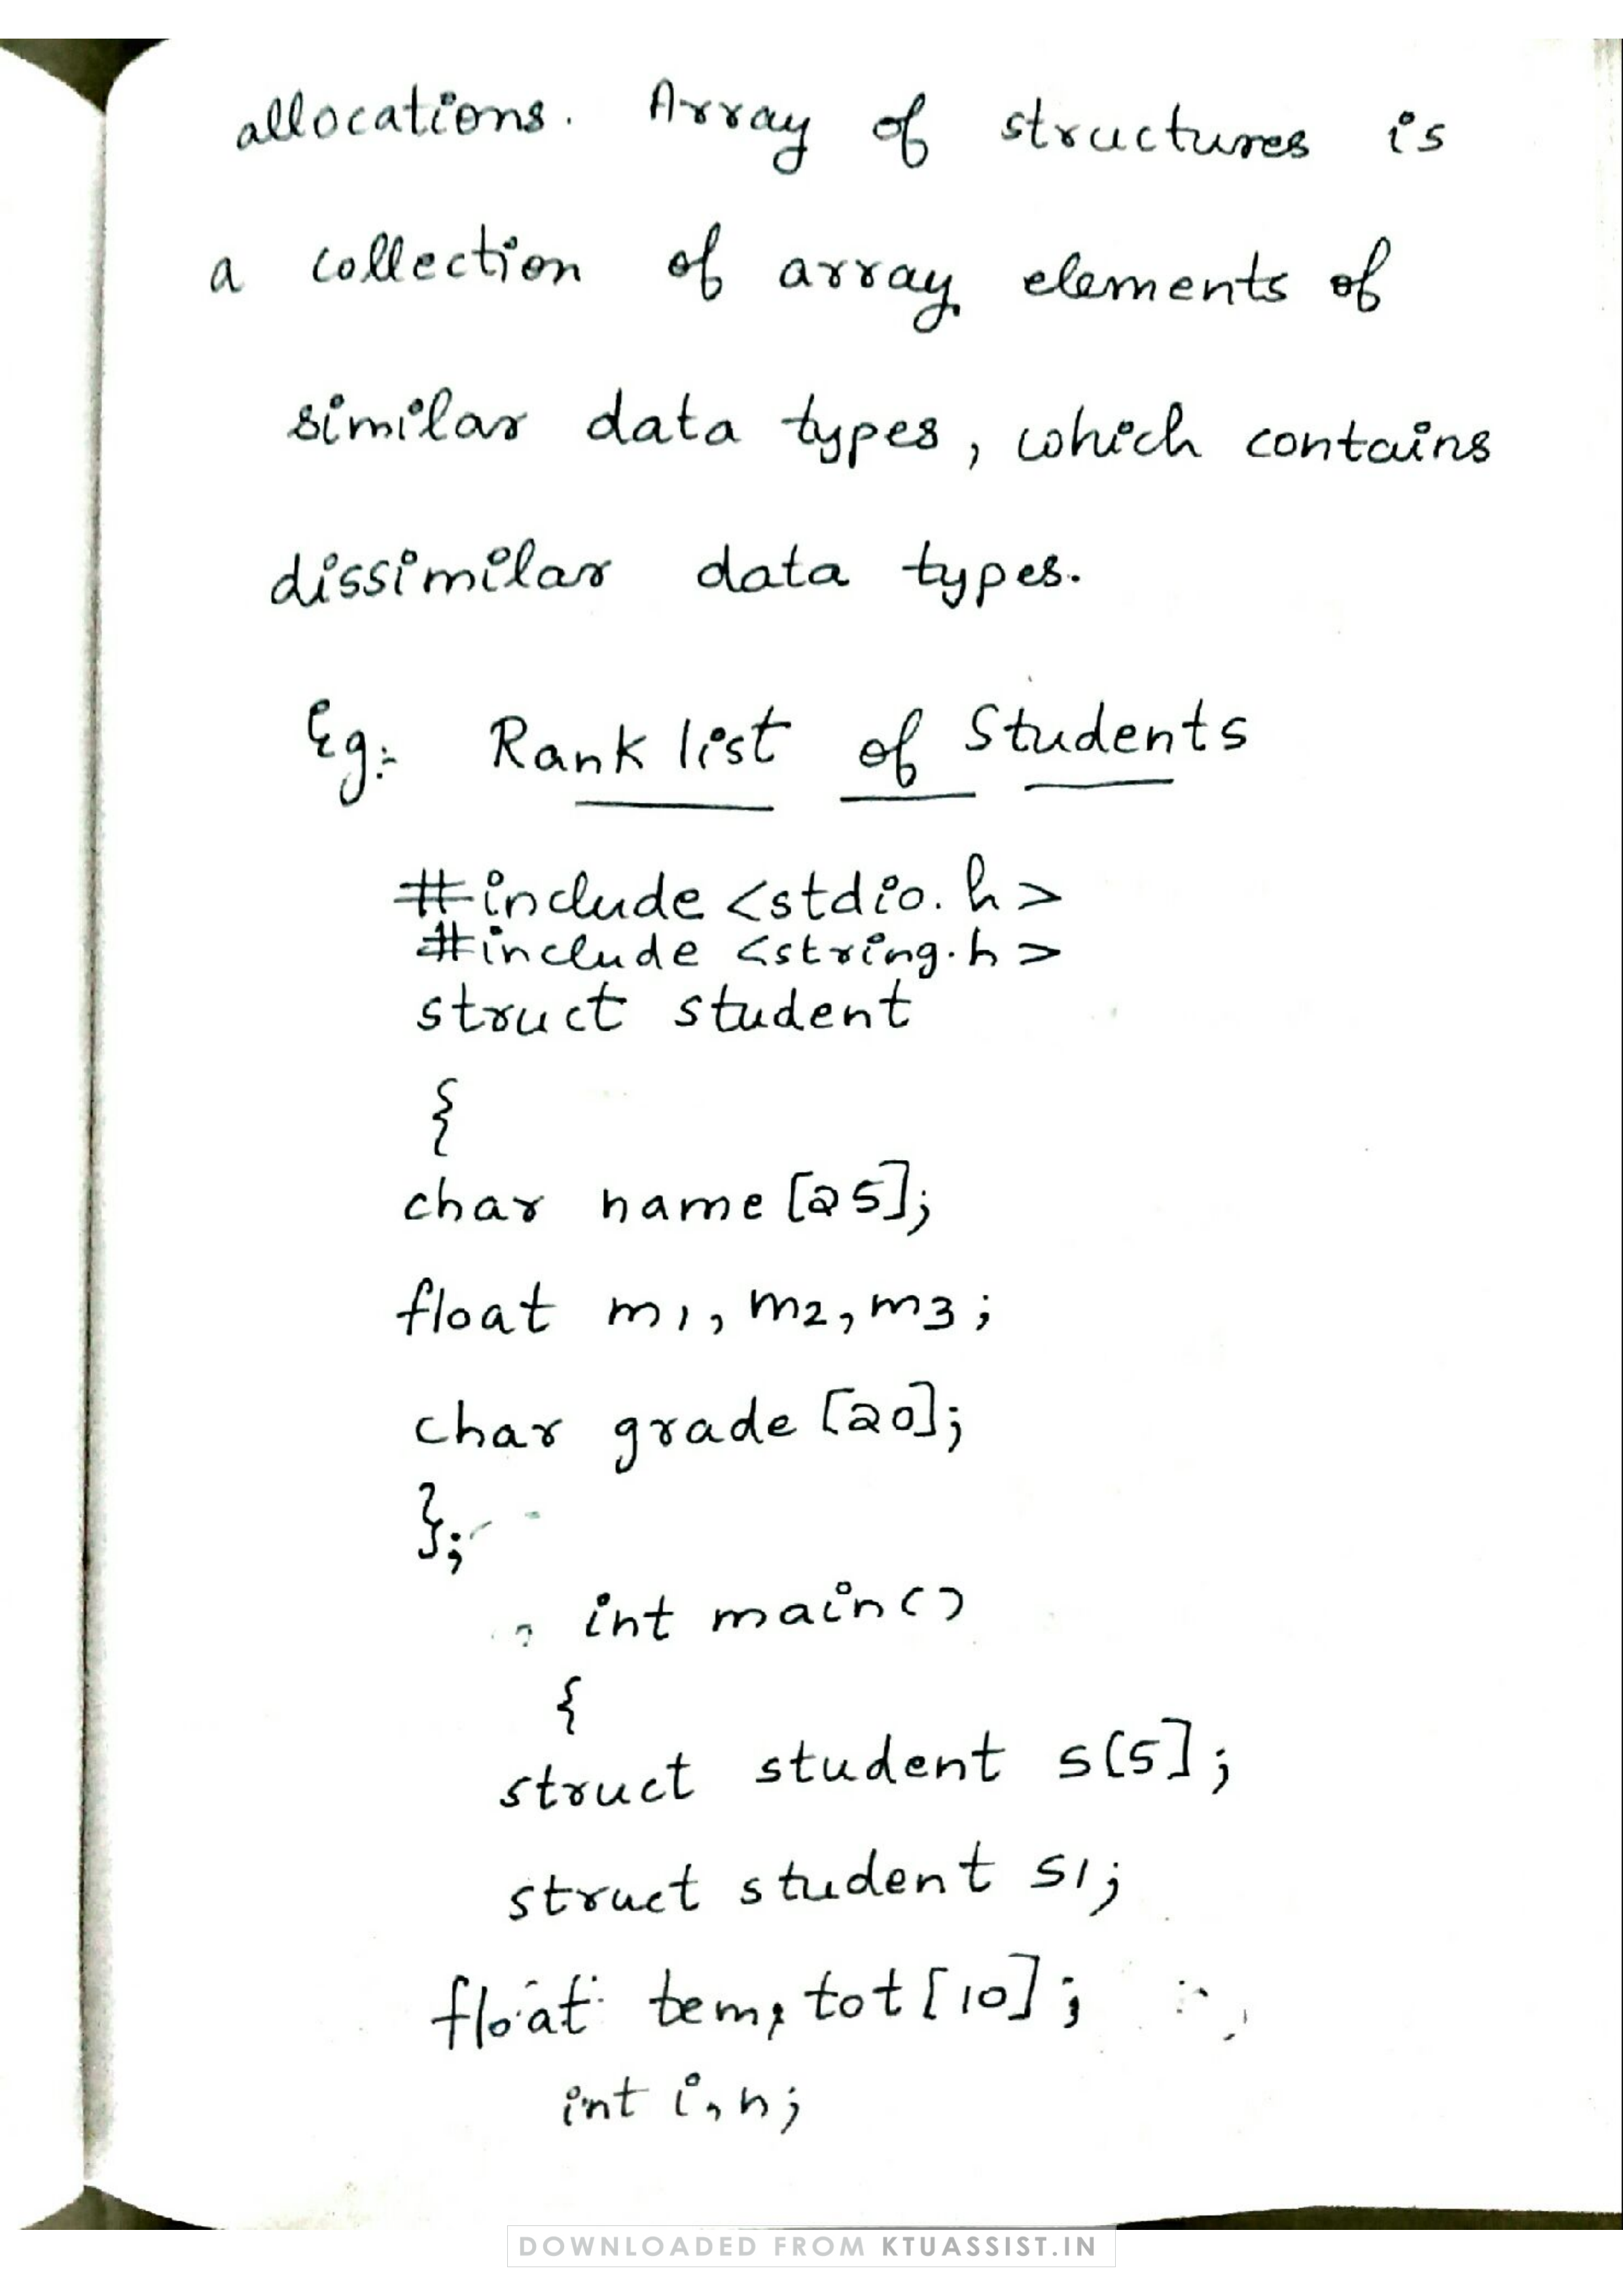 allocations. Array of structures is
a collection of array elements of
similar data types, which contains
dissimilar data types.
Eg:- Rank list of Students
#include <stdio.h>
#include <string.h>
struct student
{
char name[25];
float m1, m2, m3;
char grade[20];
};
int main()
{
struct student s[5];
struct student s1;
float tem, tot[10];
int i, n;
DOWNLOADED FROM KTUASSIST.IN